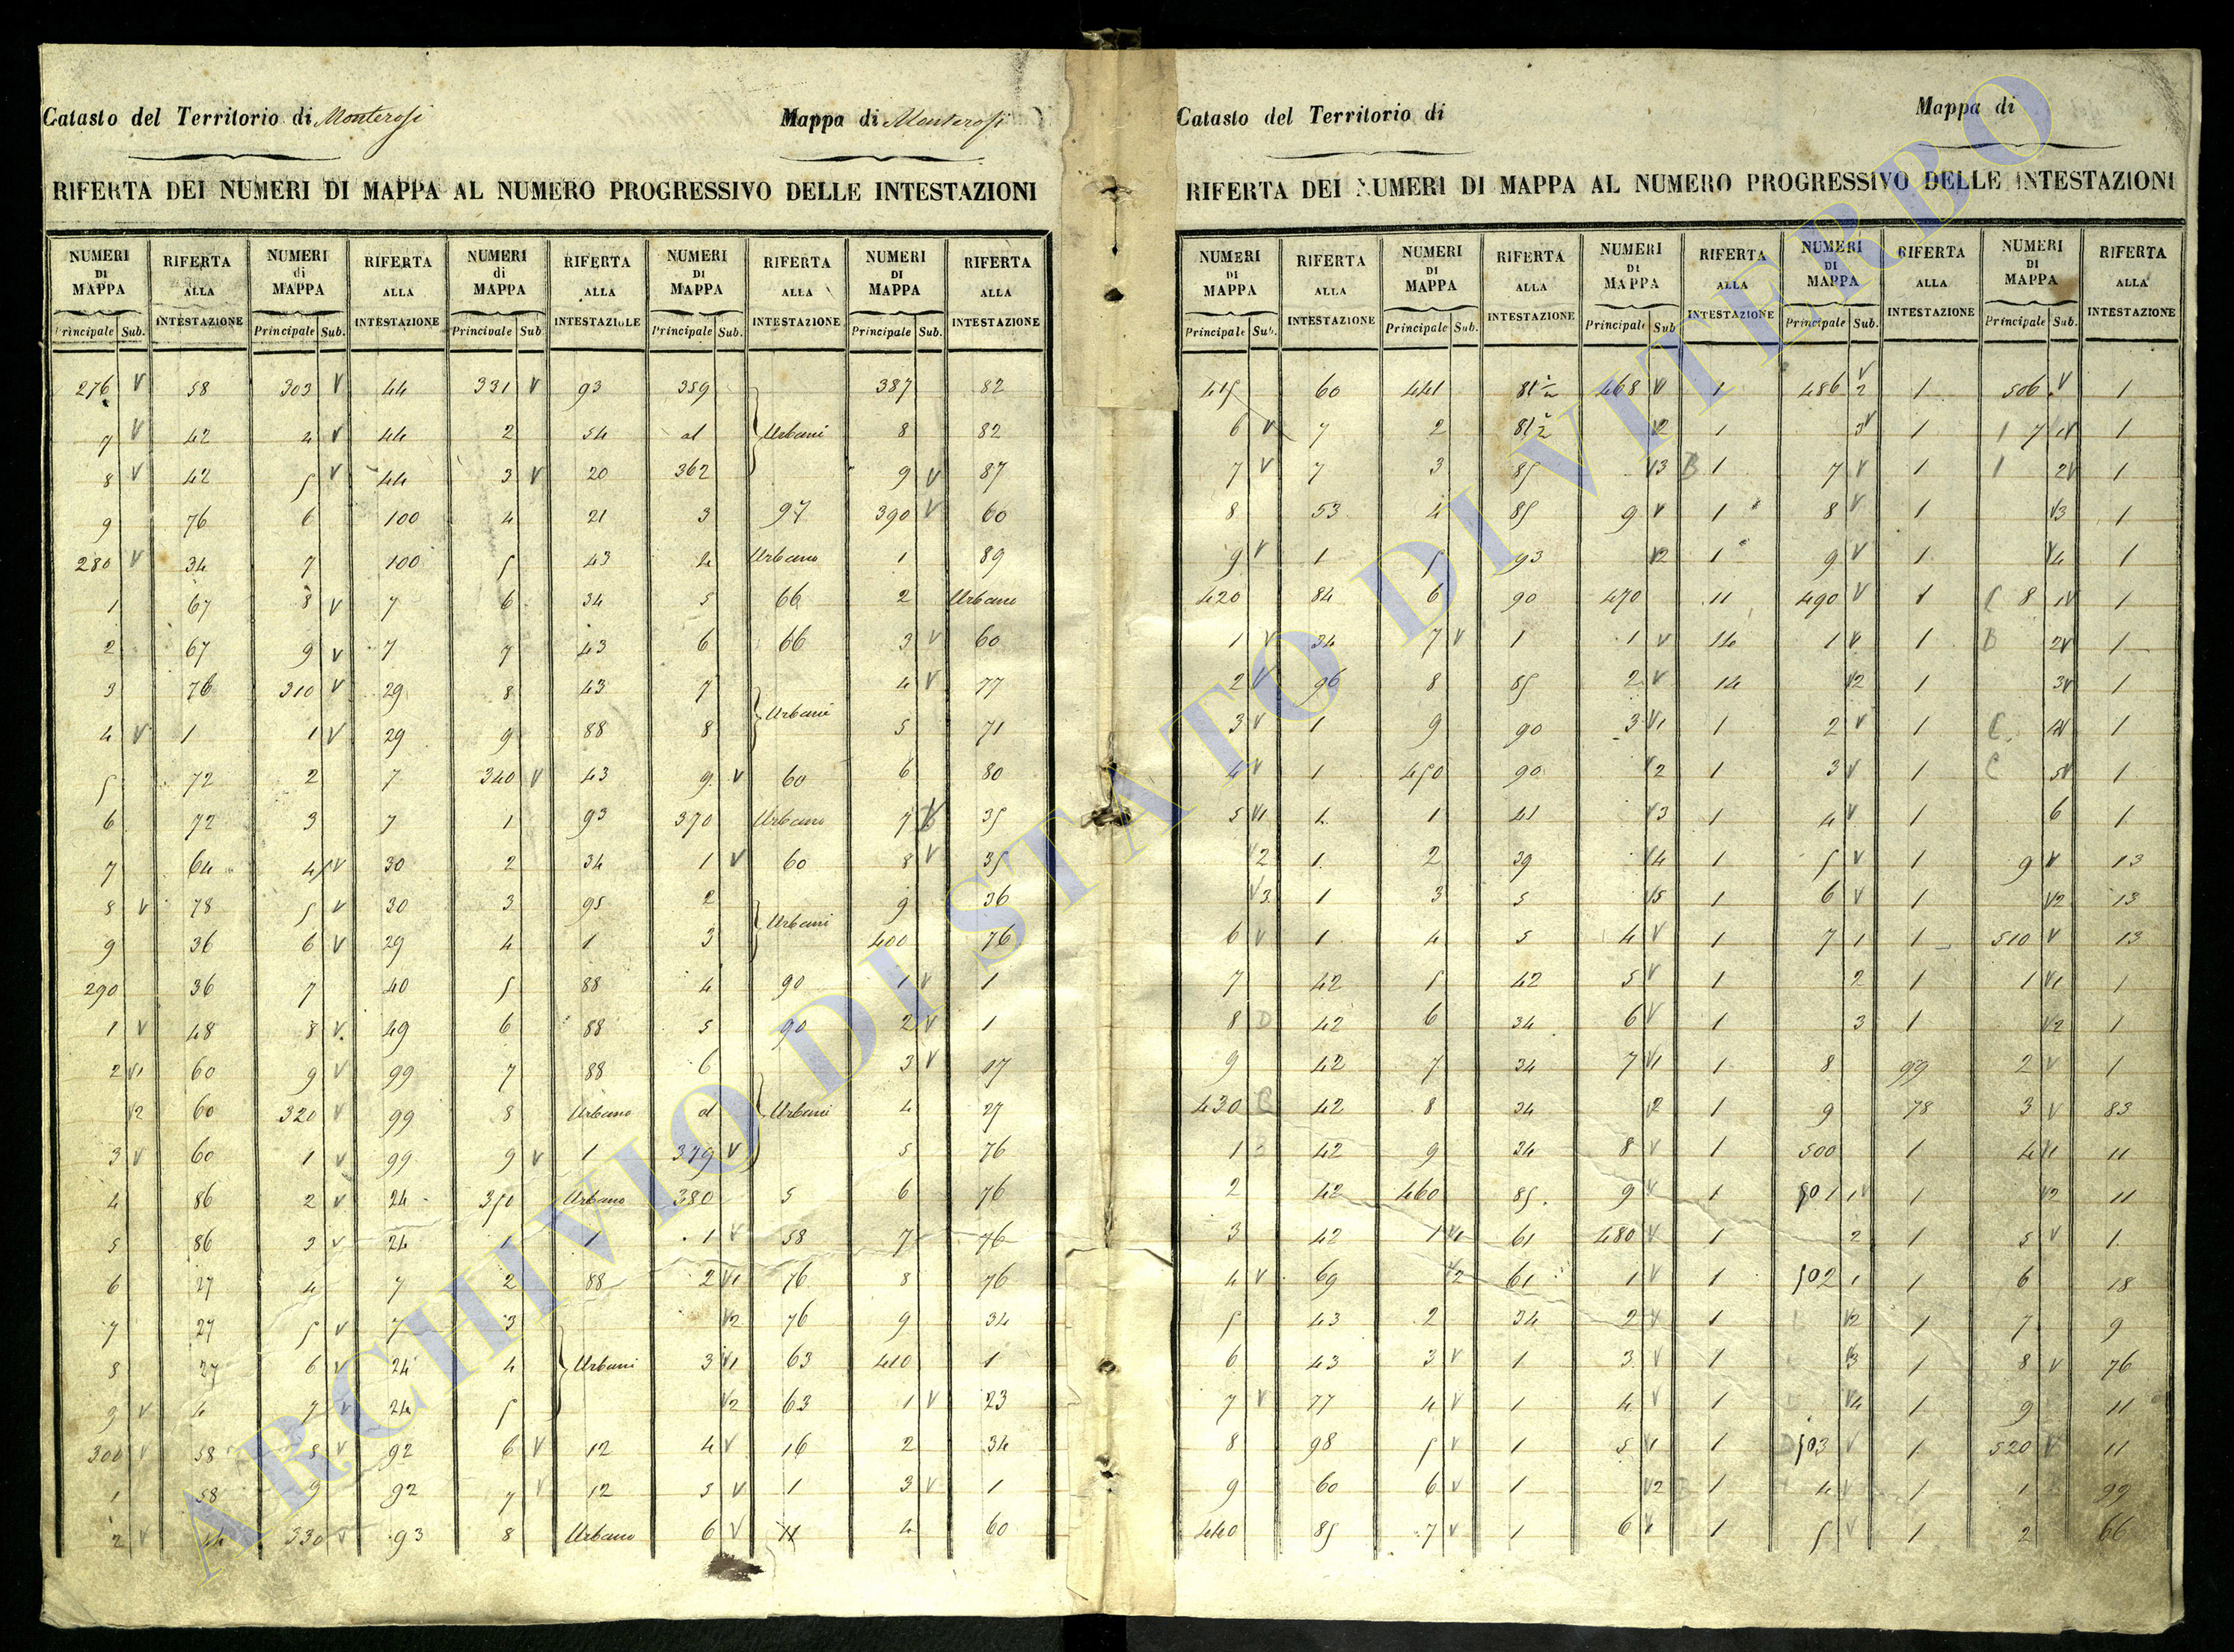 Catasto del Territorio di Monterosi Mappa di Monterosi
RIFERTA DEI NUMERI DI MAPPA AL NUMERO PROGRESSIVO DELLE INTESTAZIONI
NUMERI RIFERTA NUMERI RIFERTA NUMERI RIFERTA NUMERI RIFERTA NUMERI RIFERTA
DI di di DI DI
MAPPA ALLA MAPPA ALLA MAPPA ALLA MAPPA ALLA MAPPA ALLA
Principale Sub. INTESTAZIONE Principale Sub. INTESTAZIONE Principale Sub INTESTAZIOLE Principale Sub. INTESTAZIONE Principale Sub. INTESTAZIONE
276 V 58 303 V 44 331 V 93 359 387 82
7 V 42 4 V 44 2 54 al Urbani 8 82
8 V 42 5 V 44 3 V 20 362 9 V 87
9 76 6 100 4 21 3 97 390 V 60
280 V 34 7 100 5 43 4 Urbano 1 89
1 67 8 V 7 6 34 5 66 2 Urbano
2 67 9 V 7 7 43 6 66 3 V 60
3 76 310 V 29 8 43 7 4 V 77
4 V 1 1 V 29 9 88 8 Urbani 5 71
5 72 2 7 340 V 43 9 V 60 6 80
6 72 3 7 1 93 370 Urbano 7 V 35
7 64 4 V 30 2 34 1 V 60 8 V 35
8 V 78 5 V 30 3 95 2 9 36
9 36 6 V 29 4 1 3 Urbani 400 76
290 36 7 40 5 88 4 90 1 V 1
1 V 48 8 V 49 6 88 5 90 2 V 1
2 V1 60 9 V 99 7 88 6 3 V 17
V2 60 320 V 99 8 Urbano al Urbani 4 27
3 V 60 1 V 99 9 V 1 379 V 5 76
4 86 2 V 24 350 Urbano 380 5 6 76
5 86 3 V 24 1 1 1 V 58 7 76
6 27 4 7 2 88 2 V1 76 8 76
7 27 5 V 7 3 V2 76 9 34
8 27 6 V 24 4 Urbani 3 V1 63 410 1
9 V 4 7 V 24 5 V2 63 1 V 23
300 V 58 8 V 92 6 V 12 4 V 16 2 34
1 58 9 92 7 V 12 5 V 1 3 V 1
2 V 44 330 V 93 8 Urbano 6 V 11 4 60
Catasto del Territorio di Mappa di
RIFERTA DEI NUMERI DI MAPPA AL NUMERO PROGRESSIVO DELLE INTESTAZIONI
NUMERI RIFERTA NUMERI RIFERTA NUMERI RIFERTA NUMERI RIFERTA NUMERI RIFERTA
DI DI DI DI DI
MAPPA ALLA MAPPA ALLA MAPPA ALLA MAPPA ALLA MAPPA ALLA
Principale Sub. INTESTAZIONE Principale Sub. INTESTAZIONE Principale Sub INTESTAZIONE Principale Sub. INTESTAZIONE Principale Sub. INTESTAZIONE
415 60 441 81 468 V 1 486 V 2 1 506 V 1
6 V 7 2 81 V2 1 3V 1 7 1V 1
7 V 7 3 85 V3 B 1 7 V 1 2V 1
8 53 4 85 9 V 1 8 V 1 V3 1
9 V 1 5 93 V2 1 9 V 1 V4 1
420 84 6 90 470 11 490 V 1 C 8 1V 1
1 V 34 7 V 1 1 V 14 1 V 1 B 2V 1
2 V 96 8 85 2 V 14 V2 1 3V 1
3 V 1 9 90 3 V1 1 2 V 1 C 4V 1
4 V 1 450 90 V2 1 3 V 1 C 5V 1
5 V1 1 1 41 V3 1 4 V 1 6 1
V2 1 2 39 V4 1 5 V 1 9 V 13
V3 1 3 5 V5 1 6 V 1 V2 13
6 V 1 4 5 4 V 1 7 1 1 510 V 13
7 42 5 42 5 V 1 2 1 1 V1 1
8 D 42 6 34 6 V 1 3 1 V2 1
9 42 7 34 7 V1 1 8 99 2 V 1
430 C 42 8 34 V2 1 9 78 3 V 83
1 42 9 34 8 V 1 500 1 4 V1 11
2 42 460 85 9 V 1 501 1V 1 V2 11
3 42 1 V1 61 480 V 1 2 1 5 V 1
4 V 69 V2 61 1 V 1 502 1 1 6 18
5 43 2 34 2 V 1 V2 1 7 9
6 43 3 V 1 3 V 1 V3 1 8 V 76
7 V 77 4 V 1 4 V 1 V4 1 9 11
8 98 5 V 1 5 V1 1 D 503 V 1 520 V 11
9 60 6 V 1 V2 B 1 4 V 1 1 99
440 85 7 V 1 6 V 1 5 V 1 2 66
ARCHIVIO DI STATO DI VITERBO